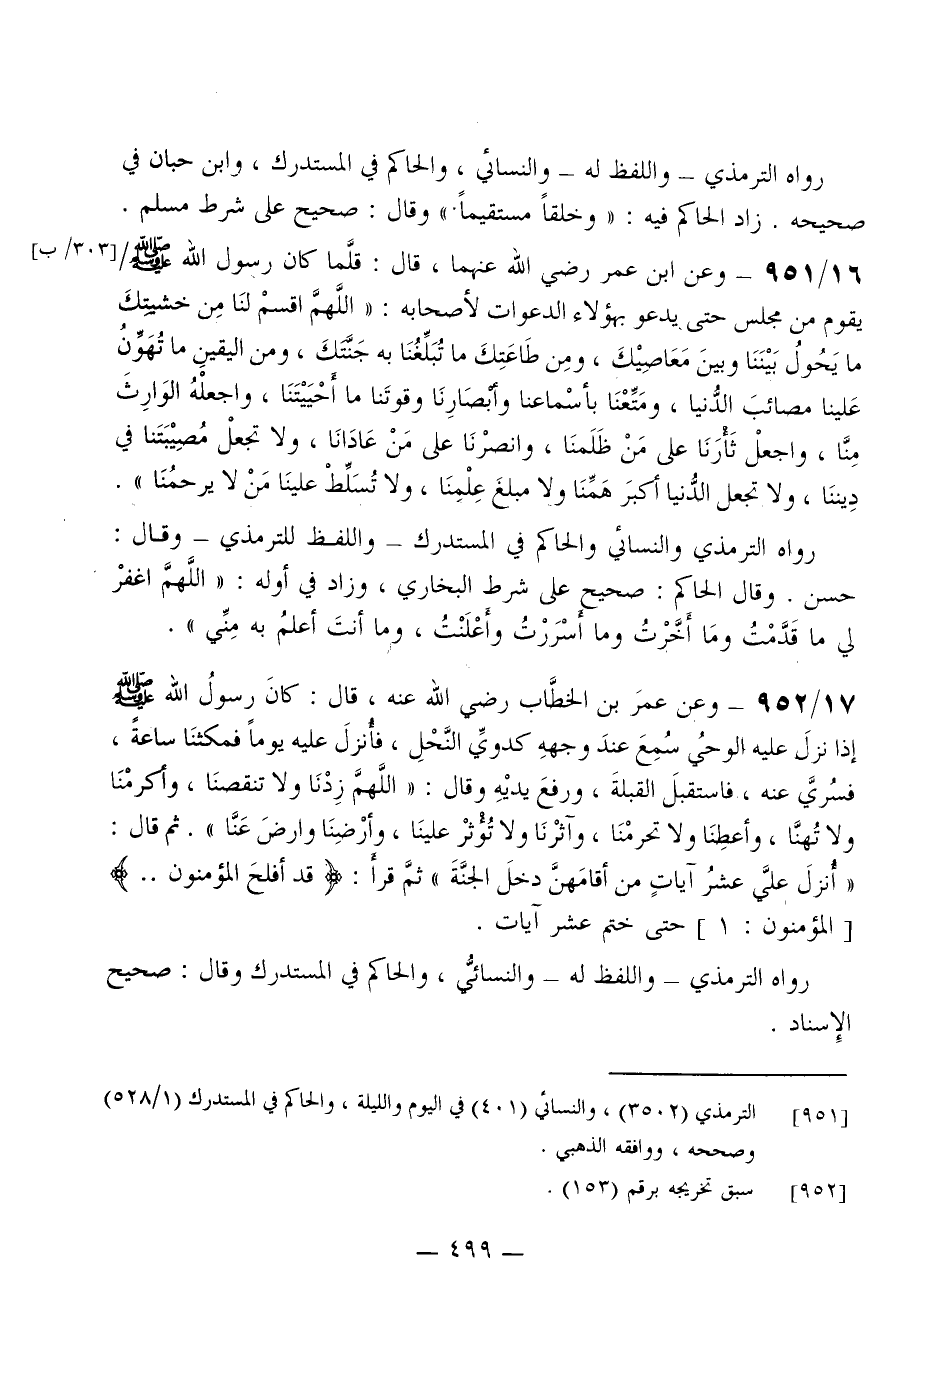 رواه الترمذي ــ واللفظ له ــ والنسائي ، والحاكم في المستدرك ، وابن حبان في
صحيحه . زاد الحاكم فيه : « وخلقاً مستقيماً » وقال : صحيح على شرط مسلم .
٩٥١/١٦ ــ وعن ابن عمر رضي الله عنهما ، قال : قلَّما كان رسول الله ﷺ/[٣٠٣/ ب]
يقوم من مجلس حتى يدعو بهؤلاء الدعوات لأصحابه : « اللَّهمَّ اقسمْ لنَا مِن خشيتِكَ
ما يَحُولُ بَيْنَنَا وبينَ مَعَاصِيْكَ ، ومِن طَاعَتِكَ ما تُبَلِّغُنَا به جَنَّتَكَ ، ومن اليقينِ ما تُهَوِّنُ
عَلينا مصائبَ الدُّنيا ، ومَتِّعْنَا بأسْماعنا وأبْصَارِنَا وقوتَنا ما أَحْيَيْتَنَا ، واجعلْهُ الوَارِثَ
مِنَّا ، واجعلْ ثَأْرَنَا على مَنْ ظَلَمنَا ، وانصرْنَا على مَنْ عَادَانَا ، ولا تجعلْ مُصِيْبَتَنا في
دِيننَا ، ولا تجعل الدُّنيا أكبرَ هَمِّنَا ولا مبلغَ عِلْمِنَا ، ولا تُسَلِّطْ علينَا مَنْ لا يرحمُنَا » .
رواه الترمذي والنسائي والحاكم في المستدرك ــ واللفظ للترمذي ــ وقال :
حسن . وقال الحاكم : صحيح على شرط البخاري ، وزاد في أوله : « اللَّهمَّ اغفرْ
لي ما قَدَّمْتُ ومَا أَخَّرْتُ وما أَسْرَرْتُ وأَعْلَنْتُ ، وما أنتَ أعلمُ به مِنِّي » .
٩٥٢/١٧ ــ وعن عمرَ بن الخطَّاب رضي الله عنه ، قال : كانَ رسولُ الله ﷺ
إذا نزلَ عليه الوحيُ سُمِعَ عندَ وجههِ كدويِّ النَّحْلِ ، فأُنزلَ عليه يوماً فمكثنَا ساعةً ،
فسُريَّ عنه ، فاستقبلَ القبلةَ ، ورفعَ يديْهِ وقال : « اللَّهمَّ زِدْنَا ولا تنقصنَا ، وأكرمْنَا
ولا تُهنَّا ، وأعطِنَا ولا تحرمْنَا ، وآثرْنَا ولا تُؤْثرْ علينَا ، وأرْضِنَا وارضَ عَنَّا » . ثم قال :
« أُنزلَ عليَّ عشرُ آياتٍ من أقامَهنَّ دخلَ الجنَّةَ » ثمَّ قرأَ : ﴿ قد أفلحَ المؤمنون .. ﴾
[ المؤمنون : ١ ] حتى ختم عشر آيات .
رواه الترمذي ــ واللفظ له ــ والنسائيُّ ، والحاكم في المستدرك وقال : صحيح
الإِسناد .
[٩٥١] الترمذي (٣٥٠٢) ، والنسائي (٤٠١) في اليوم والليلة ، والحاكم في المستدرك (٥٢٨/١)
وصححه ، ووافقه الذهبي .
[٩٥٢] سبق تخريجه برقم (١٥٣) .
ــ ٤٩٩ ــ